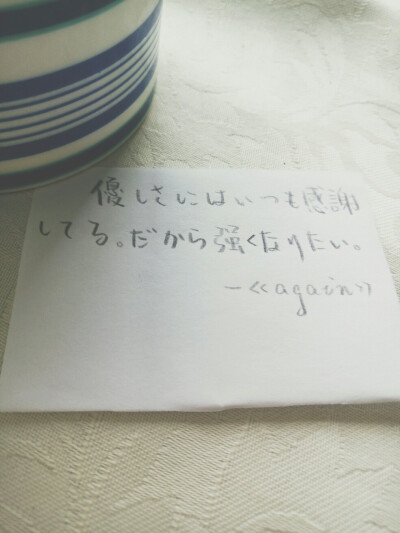 優しさにはいつも感謝
してる。だから強くなりたい。
-《again》